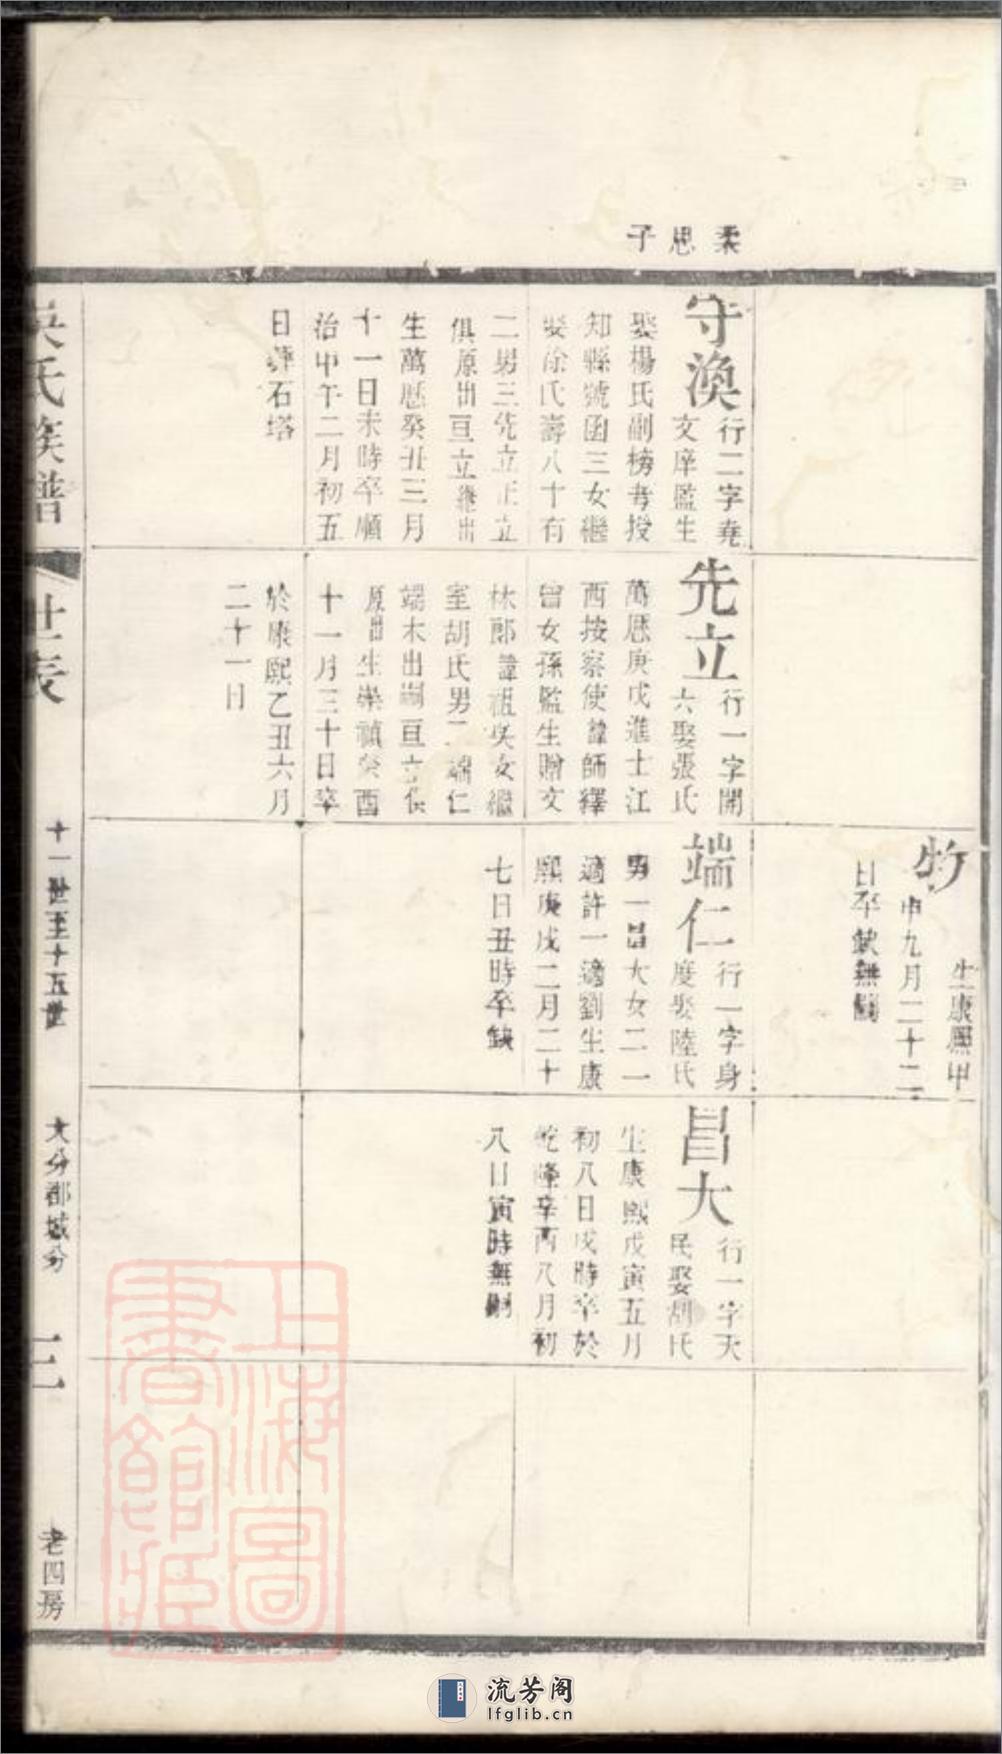 柔思子
牧
生康熙甲
申九月二十二
日卒缺無嗣
守渙
行二字堯
文庠監生
娶楊氏副榜考授
知縣號函三女繼
娶徐氏壽八十有
二男三先立正立
俱原出亘立繼出
生萬曆癸丑三月
十一日未時卒順
治甲午二月初五
日葬石塔
先立
行一字開
六娶張氏
萬曆庚戌進士江
西按察使諱師繹
曾女孫監生贈文
林郎諱祖 女繼
室胡氏男二端仁
端木出嗣亘立俱
原出生崇禎癸酉
十一月三十日卒
於康熙乙丑六月
二十一日
端仁
行一字身
度娶陸氏
男一昌大女二一
適許一適劉生康
熙庚戌二月二十
七日丑時卒缺
昌大
行一字天
民娶胡氏
生康熙戊寅五月
初八日戌時卒於
乾隆辛酉八月初
八日寅時無嗣
吳氏族譜
世表
十一世至十五世
大分郡城分
三
老四房
上海圖書館藏
流芳阁
lfglib.cn